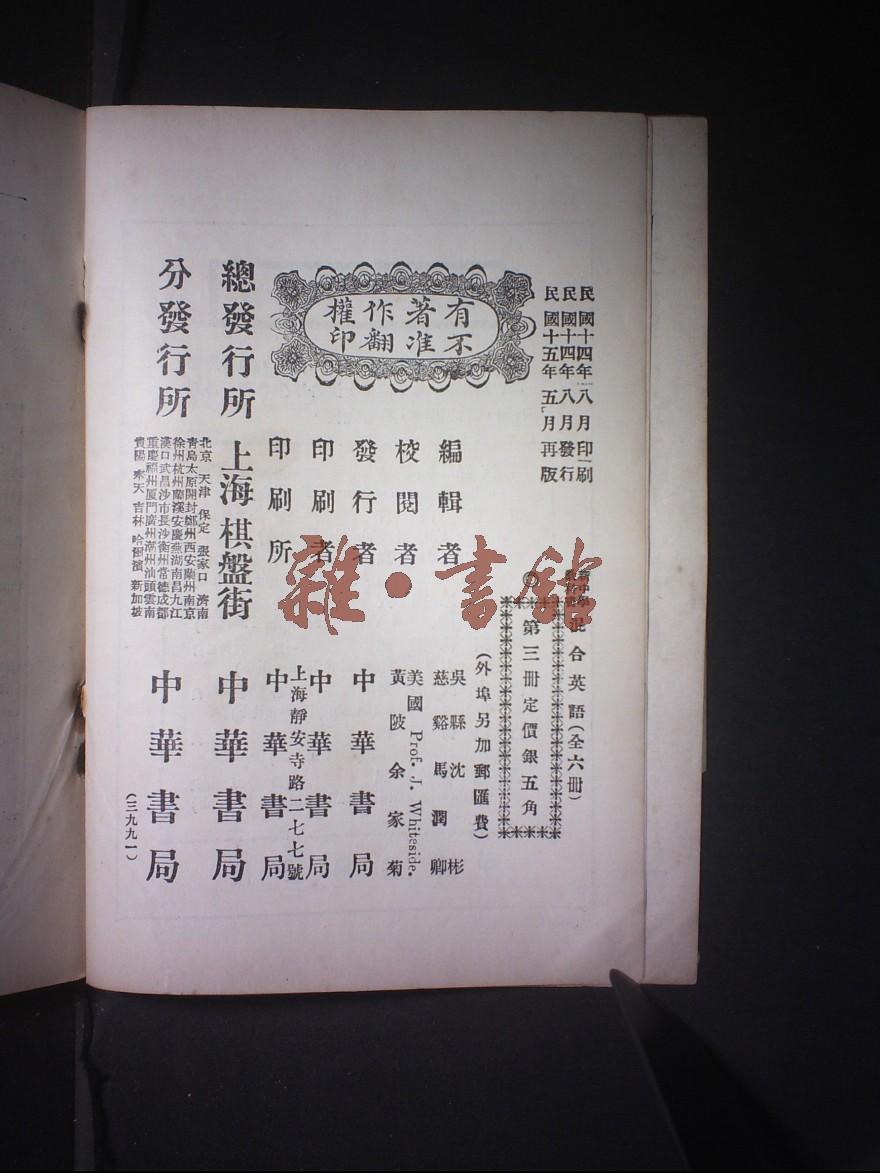 民國十四年八月印刷
民國十四年八月發行
民國十五年五月再版
新中學教科書
混合英語(全六冊)
第三冊定價銀五角
(外埠另加郵匯費)
有著作權
不准翻印
編輯者
吳縣沈彬
慈谿馬潤卿
校閱者
美國 Prof. J. Whiteside.
黃陂余家菊
發行者
中華書局
印刷者
中華書局
上海靜安寺路二七七號
印刷所
中華書局
總發行所
上海棋盤街
中華書局
分發行所
北京 天津 保定 張家口 濟南
青島太原開封鄭州西安蘭州南京
徐州杭州蘭溪安慶蕪湖南昌九江
漢口武昌沙市長沙衡州常德成都
重慶福州厦門廣州潮州汕頭雲南
貴陽 奉天 吉林 哈爾濱 新加坡
中華書局
(三九九一)
雜·書館